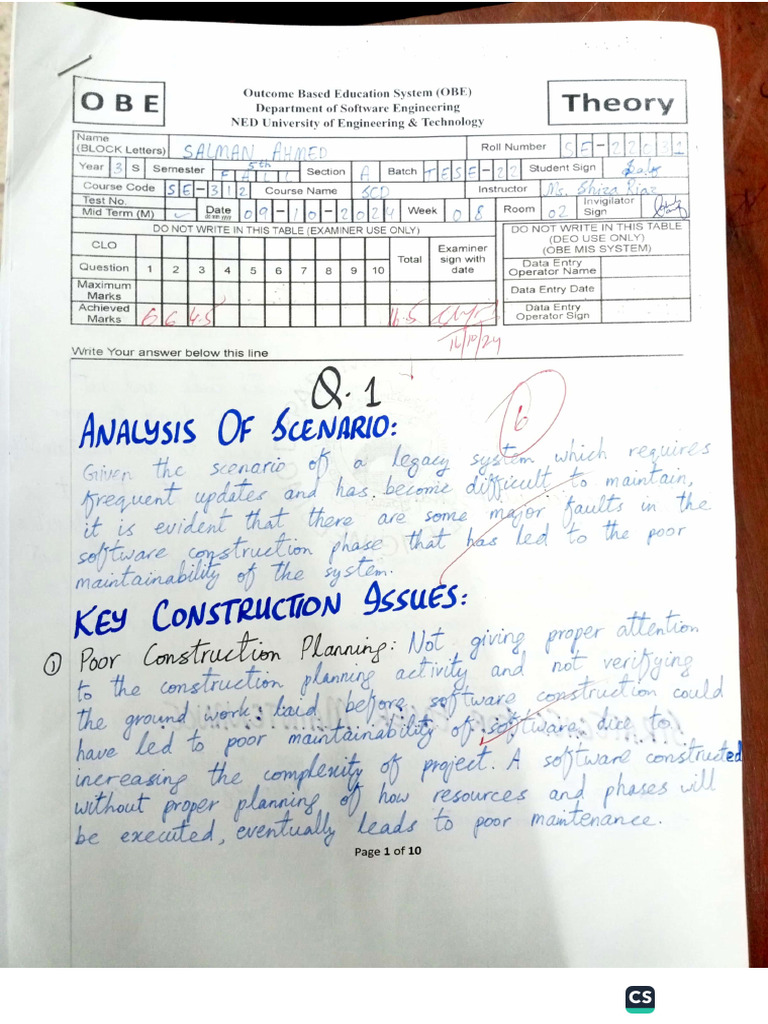 OBE
Outcome Based Education System (OBE)
Department of Software Engineering
NED University of Engineering & Technology
Theory
Name (BLOCK Letters) SALMAN AHMED Roll Number SE-22031
Year 3 Semester 5th FALL Section A Batch TESE-22 Student Sign
Course Code SE-312 Course Name SCD Instructor Ms. Shiza Riaz
Test No. Mid Term (M) ✓ Date dd mm yyyy 09-10-2024 Week 08 Room 02 Invigilator Sign
DO NOT WRITE IN THIS TABLE (EXAMINER USE ONLY)
CLO Total Examiner sign with date
Question 1 2 3 4 5 6 7 8 9 10
Maximum Marks
Achieved Marks 6 6 4.5 16.5
16/10/24
DO NOT WRITE IN THIS TABLE
(DEO USE ONLY)
(OBE MIS SYSTEM)
Data Entry Operator Name
Data Entry Date
Data Entry Operator Sign
Write Your answer below this line
Q.1
6
ANALYSIS OF SCENARIO:
Given the scenario of a legacy system which requires
frequent updates and has become difficult to maintain,
it is evident that there are some major faults in the
software construction phase that has led to the poor
maintainability of the system.
KEY CONSTRUCTION ISSUES:
① Poor Construction Planning: Not giving proper attention
to the construction planning activity and not verifying
the ground work laid before software construction could
have led to poor maintainability of software, due to
increasing the complexity of project. A software constructed
without proper planning of how resources and phases will
be executed, eventually leads to poor maintenance.
Page 1 of 10
CS